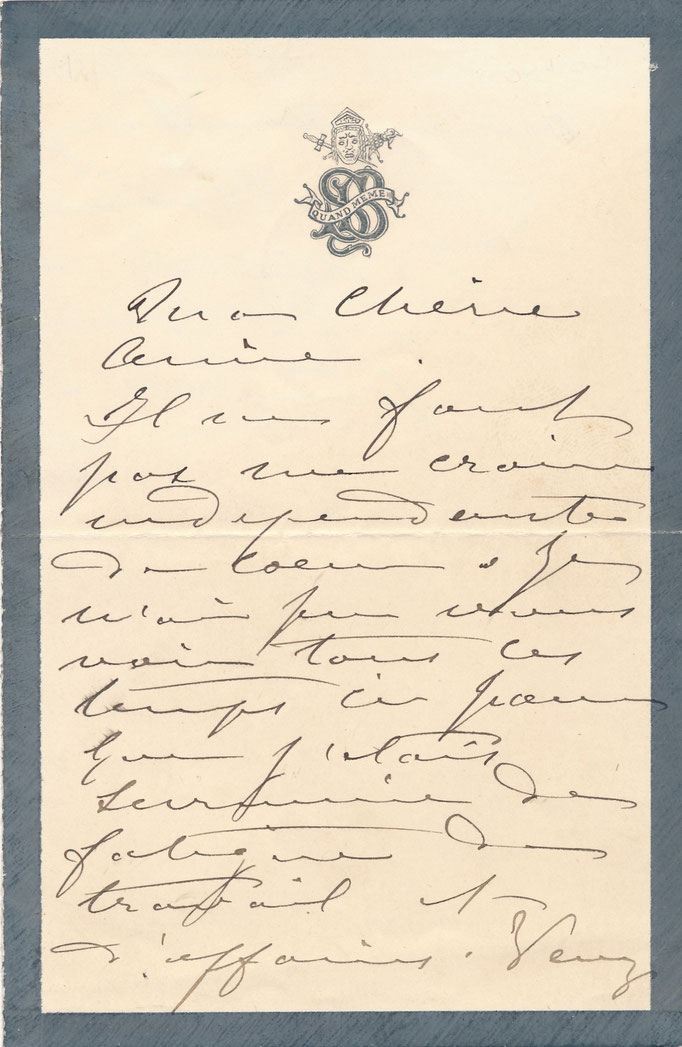 QUAND MEME
Ma Chère
Amie.
Il ne faut
pas me croire
indépendante
de coeur. Je
n'ai pu vous
voir tous ces
temps ci parce
que j'étais
surmenée de
fatigue de
travail et
d'affaires. Venez